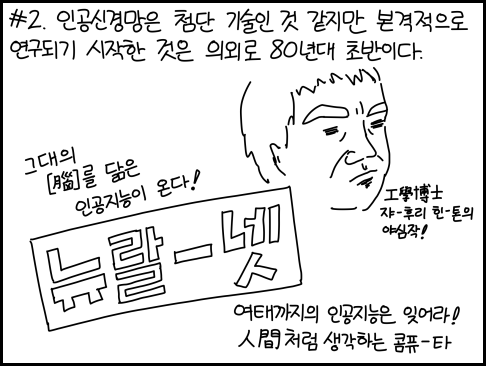 #2. 인공신경망은 첨단 기술인 것 같지만 본격적으로
연구되기 시작한 것은 의외로 80년대 초반이다.
그대의
[腦]를 닮은
인공지능이 온다!
뉴랄-넷
工學博士
쟈-후리 힌-톤의
야심작!
여태까지의 인공지능은 잊어라!
人間처럼 생각하는 콤퓨-타